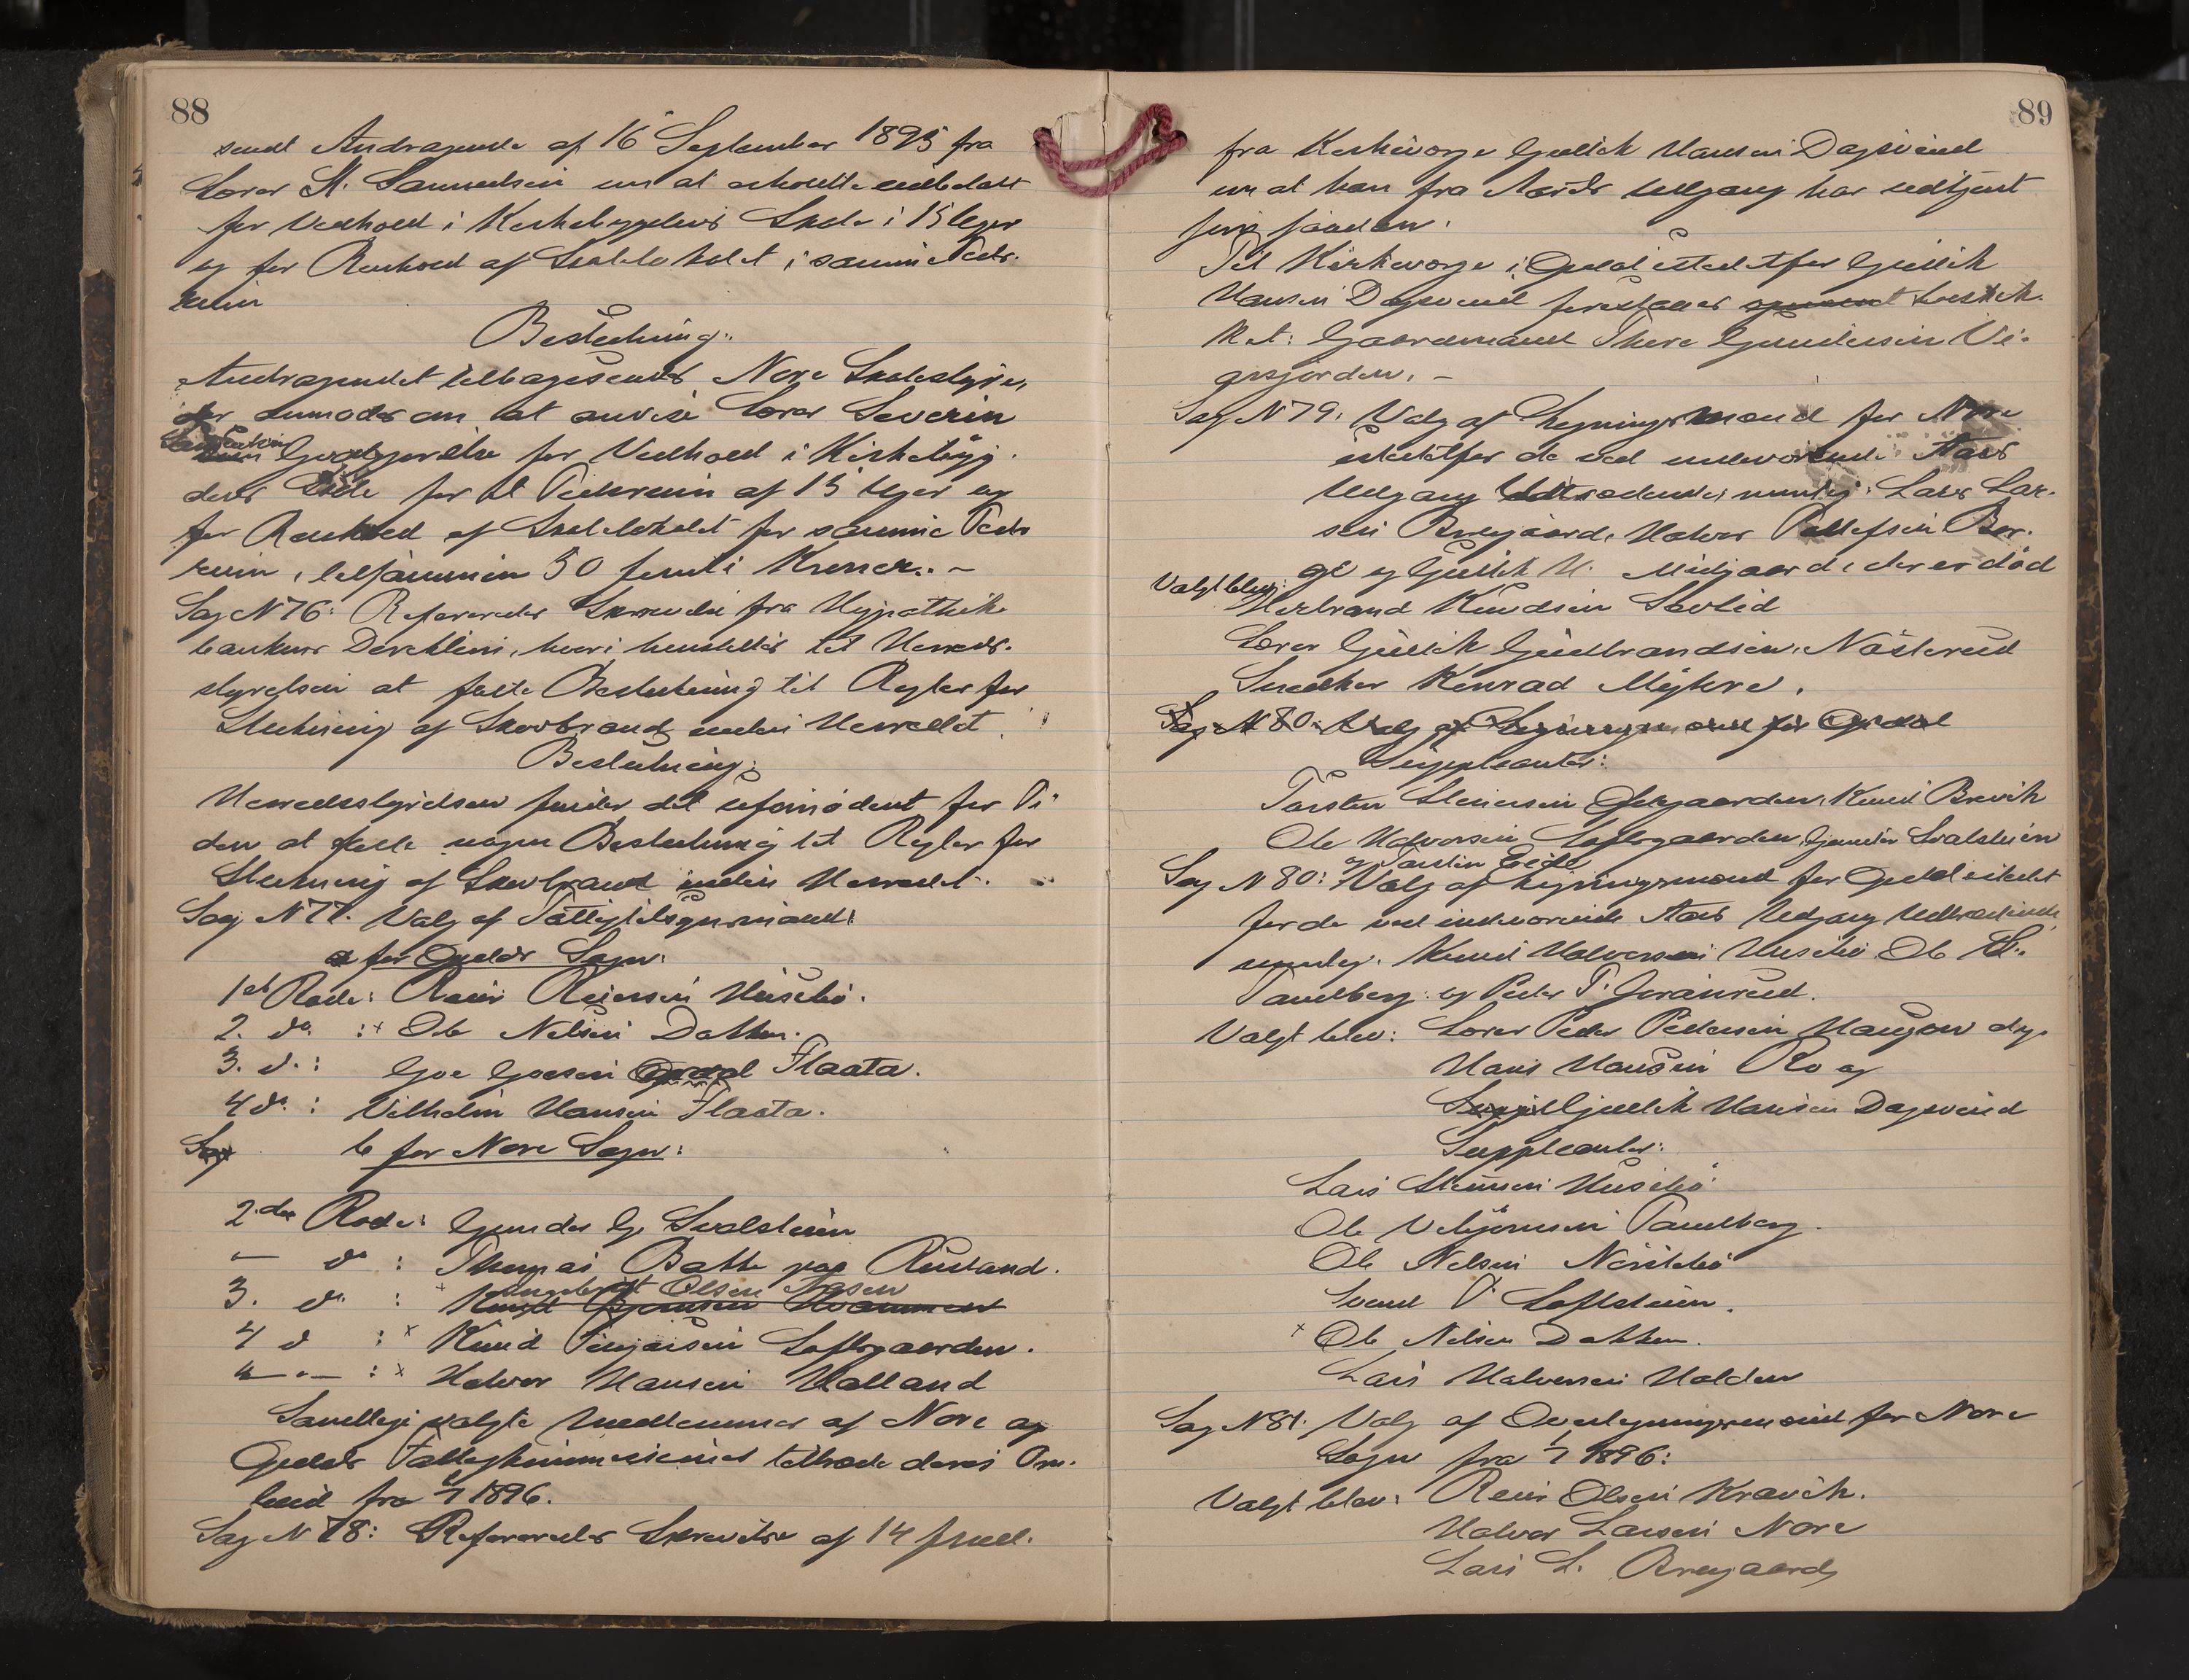 88
sendt Andragende af 16 September 1895 fra
Lærer St. Samuelsen om at erholde udbetalt
for Vedhold i Kirkebygdens Skole i 15 Uger
og for Renhold af Skolelokalet i samme Tids-
rum
Beslutning:
Andragendet tilbagesendes Nore Skolestyre,
der anmodes om at anvise Lærer Severin
Godtgjørelse for Vedhold i Kirkebyg-
dens Skole for et Tidsrum af 15 Uger og
for Renhold af Skolelokalet for samme Tids
rum, tilsammen 50 femti Kroner. -
Sag N 76: Refereredes Skrivelse fra Hypothek
bankens Direktion, hvori henstilles til Herreds-
styrelsen at fatte Beslutning til Regler for
Slukning af Skovbrand inden Herredet.
Beslutning:
Herredsstyrelsen finder det ufornødent for Ti-
den at fatte nogen Beslutning til Regler for
Slukning af Skovbrand inden Herredet.
Sag N 77. Valg af Fattigtilsynsmænd:
a for Opdals Sogn:
1ste Rode: Reier Reiersen Huusebø.
2. do. :x Ole Nelsen Dokken.
3. d. : Goe Goesen Opdal Flaata.
4 do. : Vilhelm Hansen Flaata.
Sag b for Nore Sogn:
2den Rode: Gunder G. Svalsteien
— do : Thomas Bakke paa Rustand.
3. do : x Engebret Olsen Aasen
Knudt
4 d :x Knud Torjersen Loftsgaarden.
"— " — :x Halvor Hansen Halland
Samtlige valgte Medlemmer af Nore og
Opdals Fattigkommissioner tiltræde deres Om-
bud fra 1/1 1896.
Sag N 78: Refereredes Skrivelse af 14 ds
89
fra Kirkeværge Gullik Hansen Dagsvend
om at han fra Aarets Udgang har udtjent
sin
Til Kirkeværge i Opdal istedetfor Gullik
Hansen Dagsvend foreslaaes
Gaardmand Thore Gundersen Vi-
gersjorden. -
Sag N 79: Valg af Ligningsmænd for Nore
istedetfor de ved indeværende Aars
Udgang Udtrædende, nemlig: Lars Lar-
sen Bregaard, Halvor Tollefsen Bor-
ge og Gullik H. Midgaard, der er død
Valgt blev: Herbrand Knudsen Sevlid
Lærer Gullik Gudbrandsen, Nøsterud
Snedker Konrad Myhre.
Sag N 80: Valg af Ligningsmænd for Opdal
Suppleanter:
Torsten Steinersen Opegaarden, Knud Brevik
Ole Halvorsen Loftsgaarden, Gunder Svalsteien
og Torsten Eide
Sag N 80: Valg af Ligningsmænd for Opdal istedet
for de ved indeværende Aars Udgang Udtrædende,
nemlig: Knud Halvorsen Huusebø, Ole
Tandberg og Peder T. Jøranrud.
Valgt blev: Lærer Peder Pedersen Haugen dy.
Hans Hansen Ro og
Gullik Hansen Dagsvend
Suppleanter:
Lars Steinersen Huusebø
Ole Vebjørnsen Tandberg.
Ole Nelsen Nørstebø
Svend T Loftsteien.
x Ole Nelsen Dokken.
Lars Halvorsen Holden
Sag N 81. Valg af Overligningsmænd for Nore
Sogn fra 1/1 1896:
Valgt blev: Reier Olsen Kravik.
Halvor Larsen Nore
Lars L. Bregaard